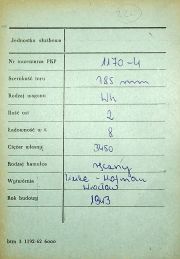 Jednostka służbowa
Nr inwentarza PKP 1170-4
Szerokość toru 785 mm
Rodzaj wagonu Wh
Ilość osi 2
Ładowność w t. 8
Ciężar własny 3450
Rodzaj hamulca ręczny
Wytwórnia Linke - Hofman
Wrocław
Rok budowy 1943